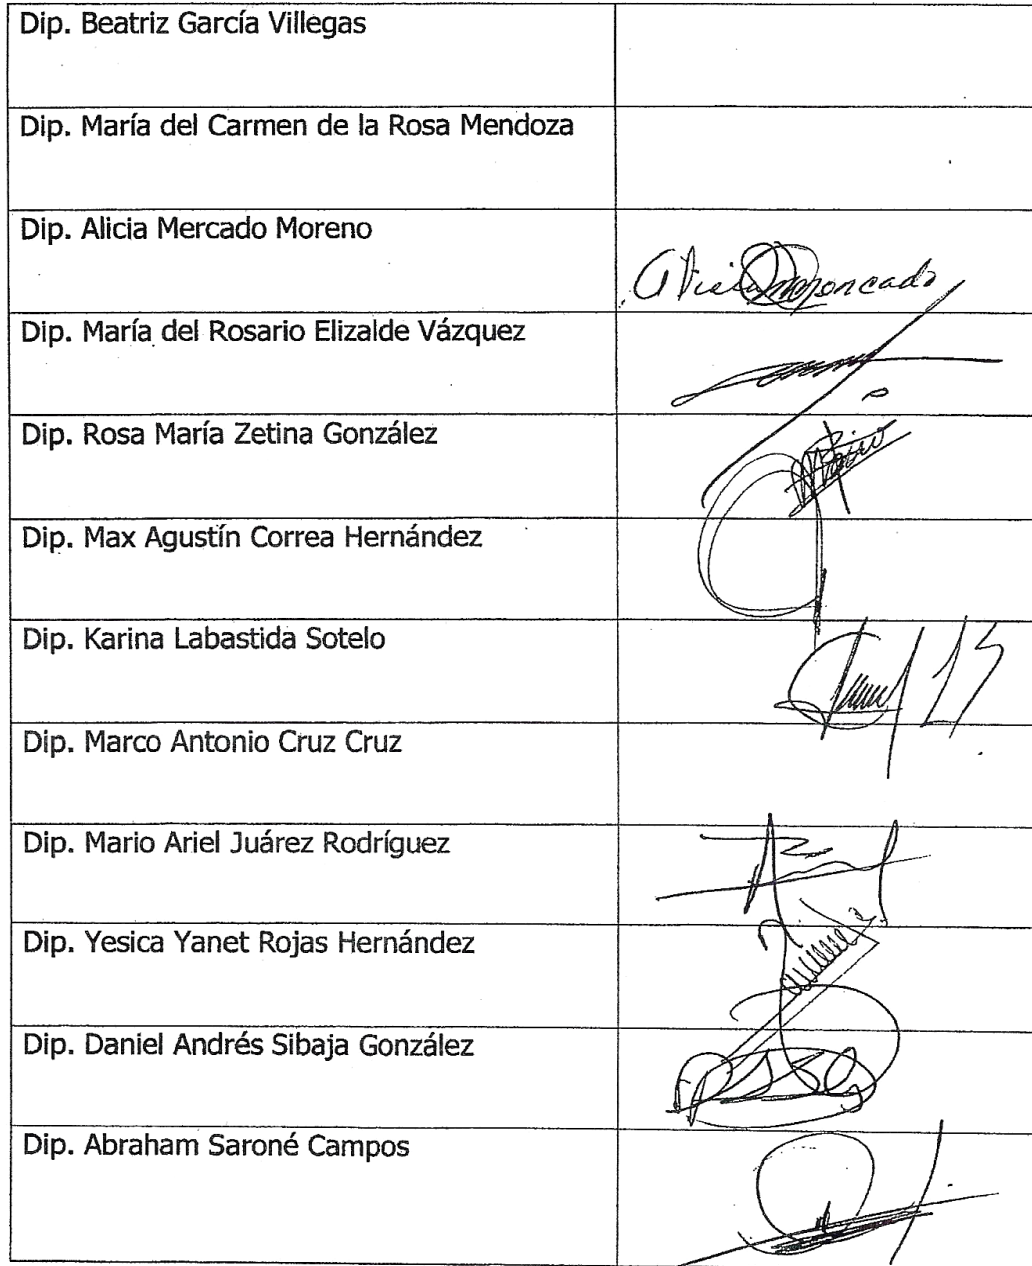 Dip. Beatriz García Villegas
Dip. María del Carmen de la Rosa Mendoza
Dip. Alicia Mercado Moreno
Dip. María del Rosario Elizalde Vázquez
Dip. Rosa María Zetina González
Dip. Max Agustín Correa Hernández
Dip. Karina Labastida Sotelo
Dip. Marco Antonio Cruz Cruz
Dip. Mario Ariel Juárez Rodríguez
Dip. Yesica Yanet Rojas Hernández
Dip. Daniel Andrés Sibaja González
Dip. Abraham Saroné Campos